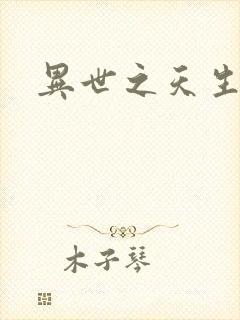 異世之天生
木子琴